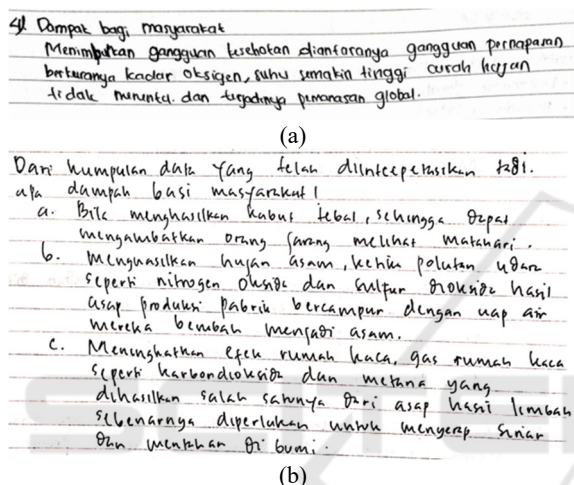 4). Dampak bagi masyarakat
Menimbulkan gangguan kesehatan diantaranya gangguan pernapasan
berkurangnya kadar oksigen, suhu semakin tinggi curah hujan
tidak menentu. dan terjadinya pemanasan global.
(a)
Dari kumpulan data yang telah diinterpetasikan tadi.
apa dampak bagi masyarakat!
a. Bila menghasilkan kabut tebal, sehingga dapat
mengambatkan orang jarang melihat matahari.
b. menghasilkan hujan asam, ketika polutan udara
seperti nitrogen oksida dan sulfur dioksida hasil
asap produksi pabrik bercampur dengan uap air
mereka berubah menjadi asam.
c. Meningkatkan efek rumah kaca, gas rumah kaca
seperti karbondioksida dan metana yang
dihasilkan salah satunya dari asap hasil limbah
sebenarnya diperlukan untuk menyerap sinar
dan di bumi.
(b)